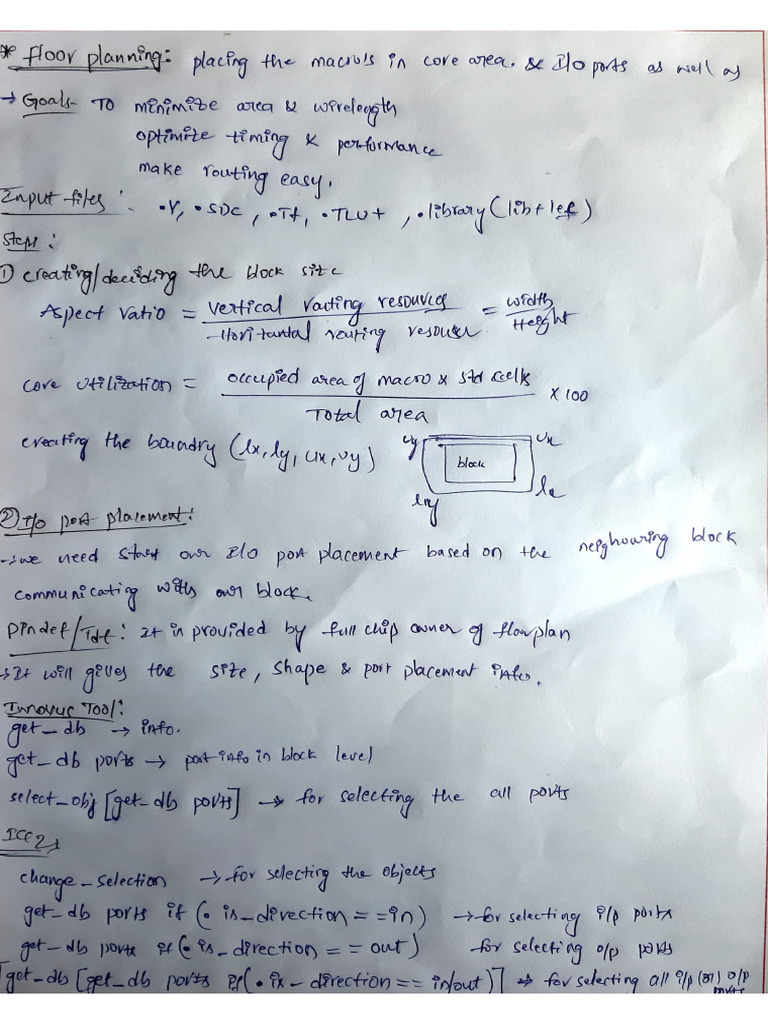 * Floor planning: placing the macro's in core area. & I/o ports as well as
→ Goals- To minimize area & wirelength
optimize timing & performance
make routing easy.
Input files: .V, .SDC, .Tf, .TLU+, .library (lib + lef)
Steps:
① creating/deciding the block size
Aspect ratio = vertical routing resources / Horizantal routing resouser = width / Height
core utilization = occupied area of macro & std cells / Total area × 100
creating the boundry (lx, ly, ux, uy)
uy ux
block
ly lx
② I/o port placement:
→ we need start our I/O port placement based on the neighouring block
communicating with our block.
Pindef/Tdf: It is provided by full chip owner of flowplan
→ It will gives the size, shape & port placement info.
Innovus Tool:
get_db → info.
get_db ports → port info in block level
select_obj [get_db ports] → for selecting the all ports
ICC2,
change_selection → for selecting the objects
get_db ports if (.is_direction==in) → for selecting i/p ports
get_db ports if (.is_direction==out) for selecting o/p ports
[get_db [get_db ports if (.is-direction== in/out)] → for selecting all i/p (or) o/p
ports